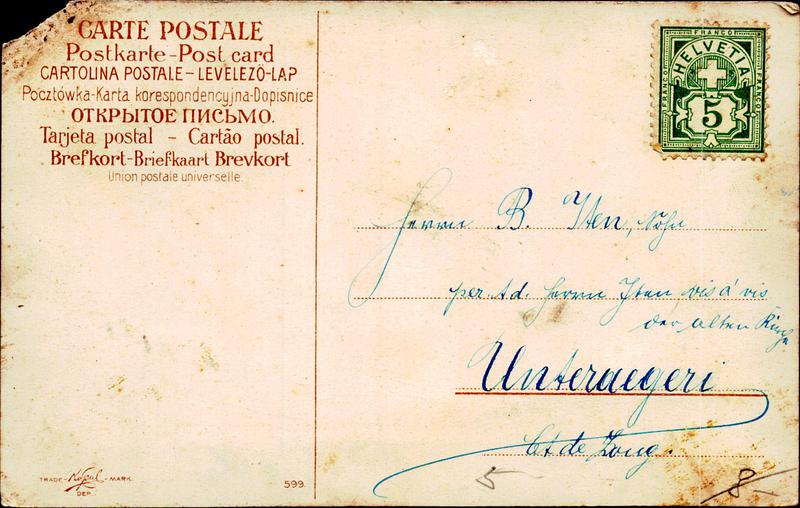 CARTE POSTALE
Postkarte-Post card
CARTOLINA POSTALE-LEVELEZŐ-LAP
Pocztówka-Karta korespondencyjna-Dopisnice
ОТКРЫТОЕ ПИСЬМО.
Tarjeta postal - Cartão postal.
Brefkort-Briefkaart Brevkort
Union postale universelle.
FRANCO
FRANCO
FRANCO
HELVETIA
5
Herrn B. Iten, Sohn
per. Ad. Herrn Iten vis á vis
der alten Kirche
Unteraegeri
Ct de Zoug.
TRADE- -MARK
DEP.
599
5
8